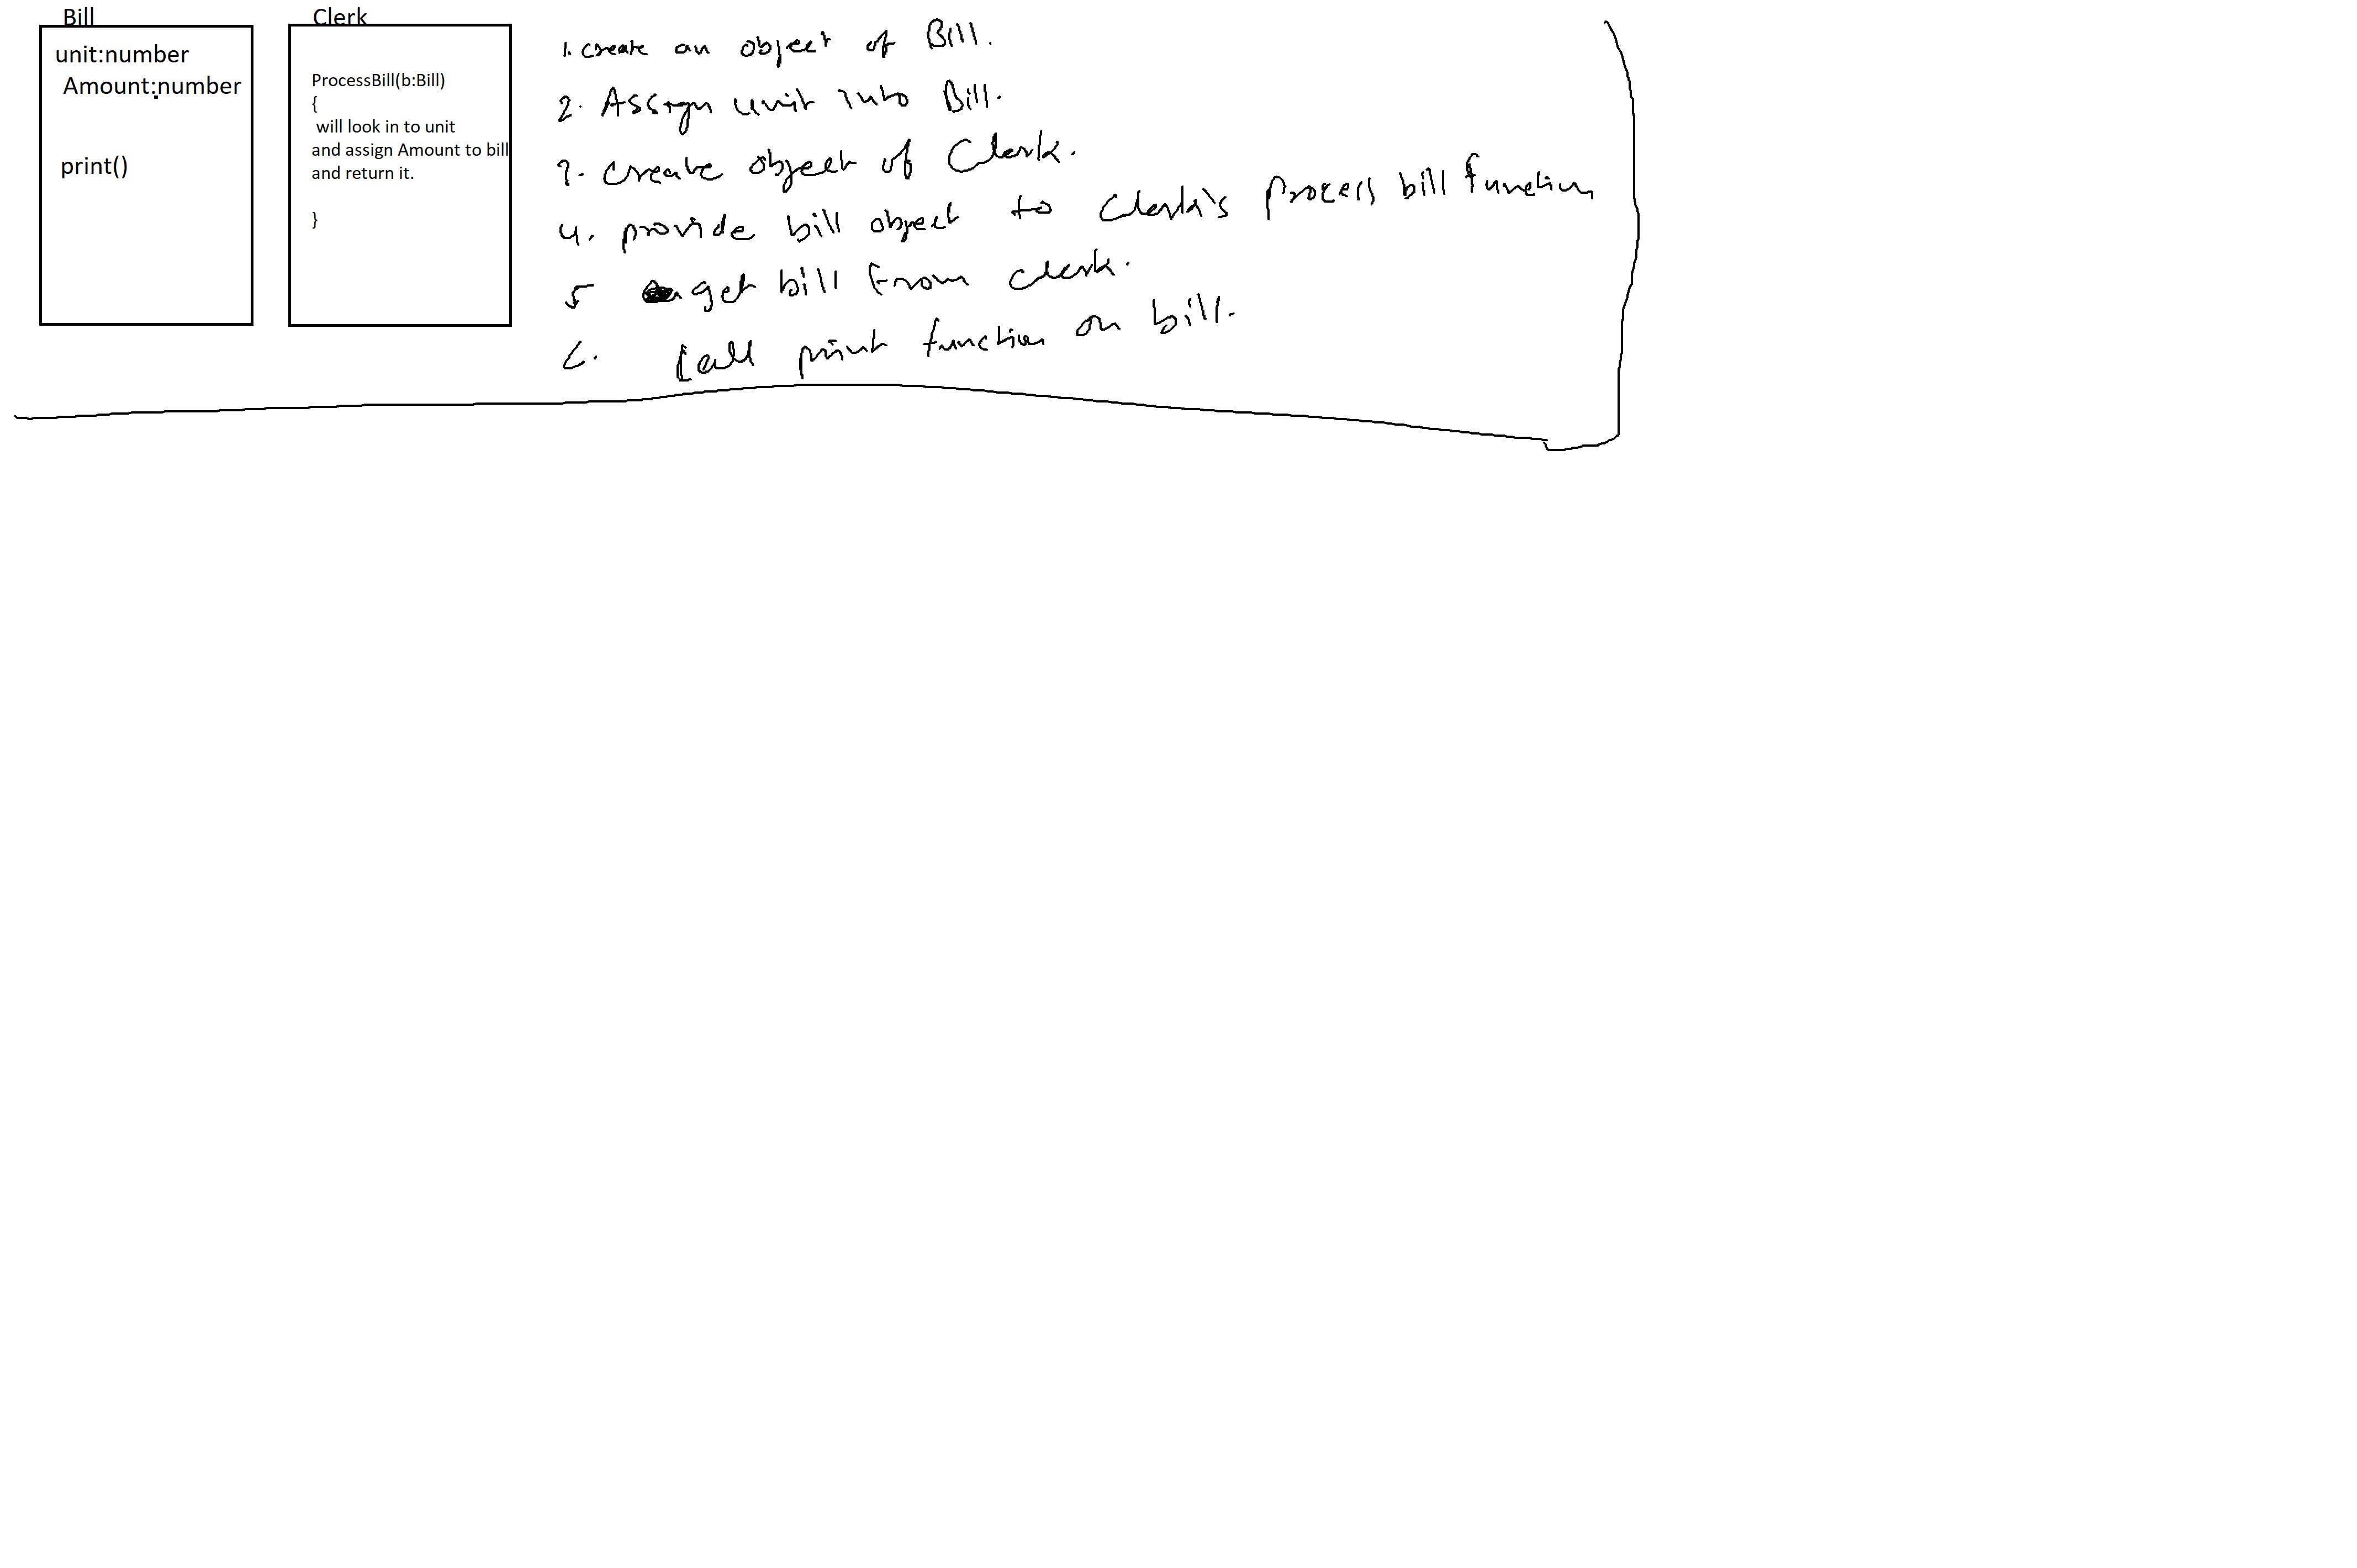 Bill
unit:number
Amount:number
print()
Clerk
ProcessBill(b:Bill)
{
will look in to unit
and assign Amount to bill
and return it.
}
1. create an object of Bill.
2. Assign unit into Bill.
3. create object of Clerk.
4. provide bill object to Clerk's Process bill function
5 get bill from clerk.
6. call print function on bill.